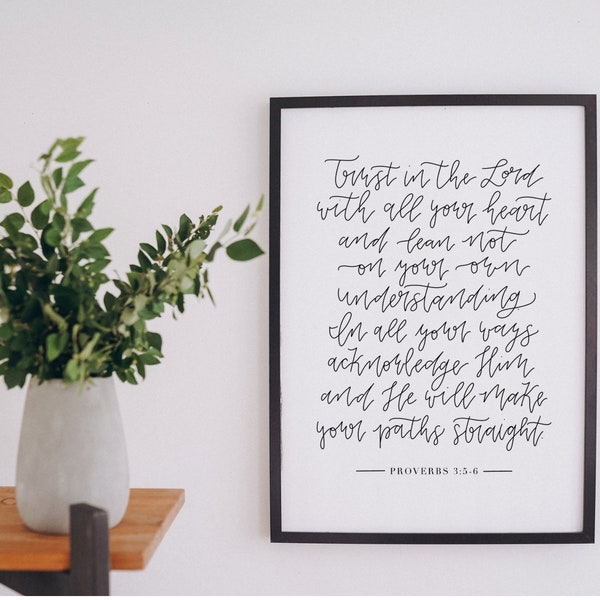 Trust in the Lord
with all your heart
and lean not
on your own
understanding
In all your ways
acknowledge Him
and He will make
your paths straight.
PROVERBS 3:5-6